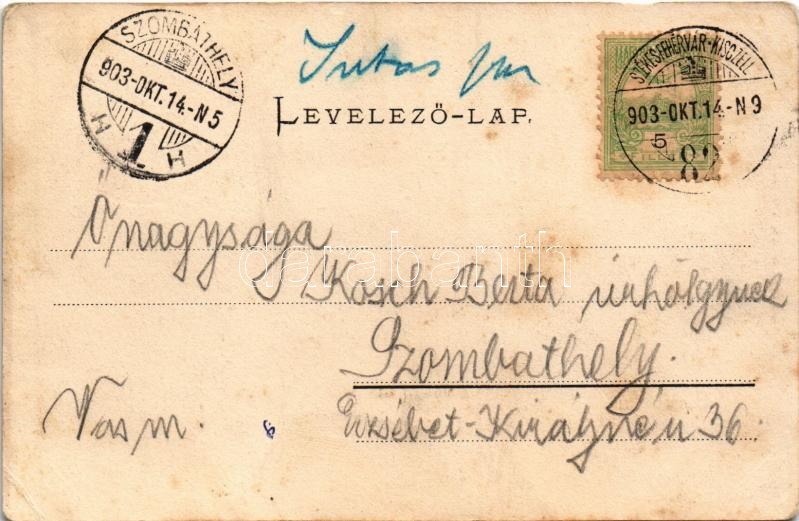 SZOMBATHELY
903-OKT.14.-N5
1
Jutas
SZÉKESFEHÉRVÁR-KISCZELL
903-OKT.14.-N9
82
5
LEVELEZŐ-LAP.
Őnagysága
darabanth
Kosch Berta úrhölgynek
Szombathely.
Vas m.
Erzsébet-Királyné u 36.